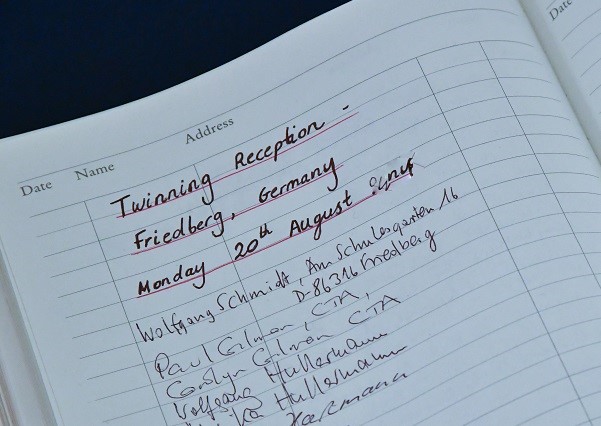 Date
Date Name Address
Twinning Reception -
Friedberg, Germany
Monday 20th August
Wolfgang Schmidt, Am Schulesgarten 16
D-86316 Friedberg
Paul Gilman, CTA,
Carolyn Gilman CTA
Wolfgang Hullermann
Hullermann
Hartmann